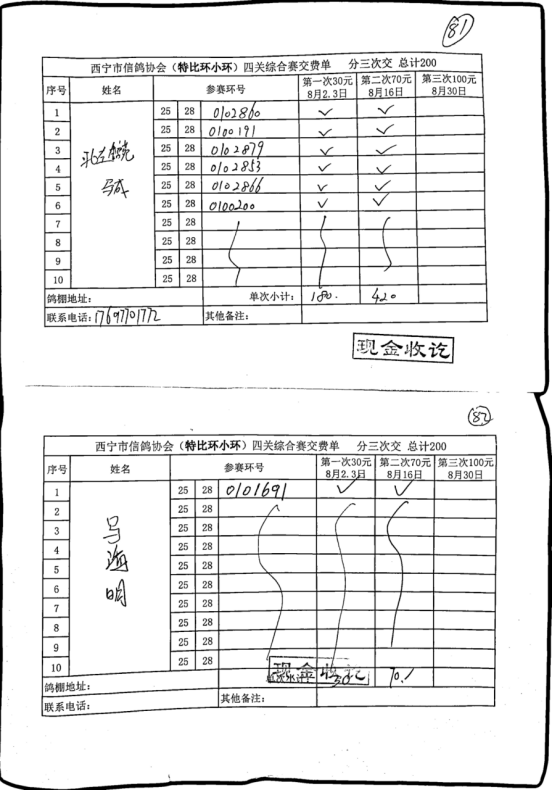 81
西宁市信鸽协会（特比环小环）四关综合赛交费单 分三次交 总计200
序号 姓名 参赛环号 第一次30元 8月2.3日 第二次70元 8月16日 第三次100元 8月30日
1 25 28 0102860 ✓ ✓
2 25 28 0100191 ✓ ✓
3 25 28 0102879 ✓ ✓
4 25 28 0102853 ✓ ✓
5 25 28 0102866 ✓ ✓
6 25 28 0100200 ✓ ✓
7 25 28
8 25 28
9 25 28
10 25 28
鸽棚地址： 单次小计： 180. 420
联系电话：17697701772 其他备注：
现金收讫
82
西宁市信鸽协会（特比环小环）四关综合赛交费单 分三次交 总计200
序号 姓名 参赛环号 第一次30元 8月2.3日 第二次70元 8月16日 第三次100元 8月30日
1 25 28 0101691 ✓ ✓
2 25 28
3 25 28
4 25 28
5 25 28
6 25 28
7 25 28
8 25 28
9 25 28
10 25 28
马海明
现金收讫
鸽棚地址： 30 70.
联系电话： 其他备注：